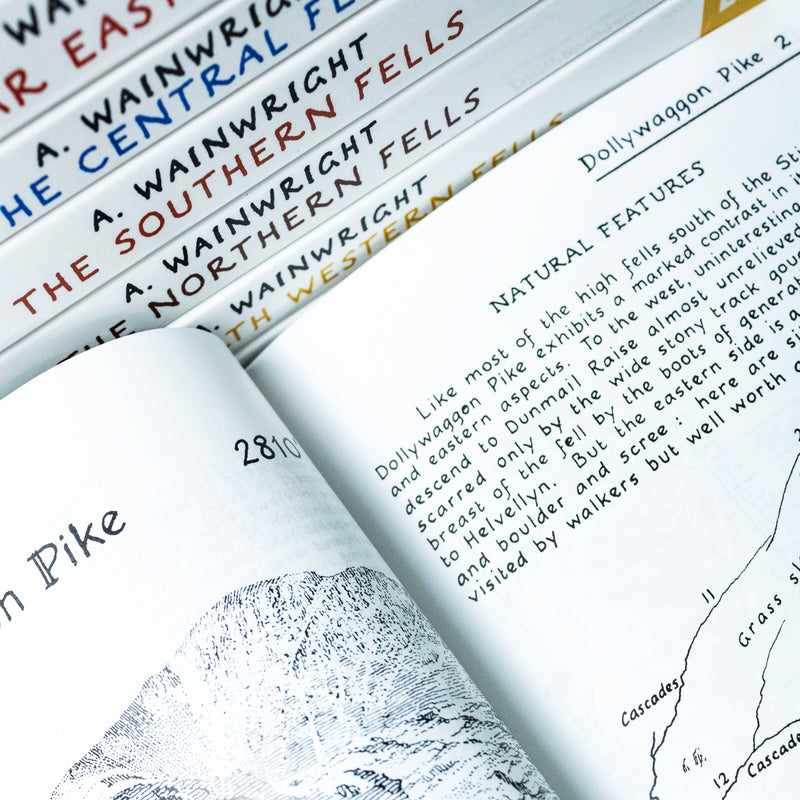 WAIN
AR EAST
A. WAINWRIG
HE CENTRAL FE
A. WAINWRIGHT
THE SOUTHERN FELLS
A. WAINWRIGHT
THE NORTHERN FELLS
A. WAINWRIGHT
TH WESTERN FELLS
2810
n Pike
Dollywaggon Pike 2
NATURAL FEATURES
Like most of the high fells south of the Sti
Dollywaggon Pike exhibits a marked contrast in it
and eastern aspects. To the west, uninteresting
descend to Dunmail Raise almost unrelieved
scarred only by the wide stony track goug
breast of the fell by the boots of general
to Helvellyn. But the eastern side is a
and boulder and scree: here are si
visited by walkers but well worth
11
Grass sl
Cascades
12
Cascade